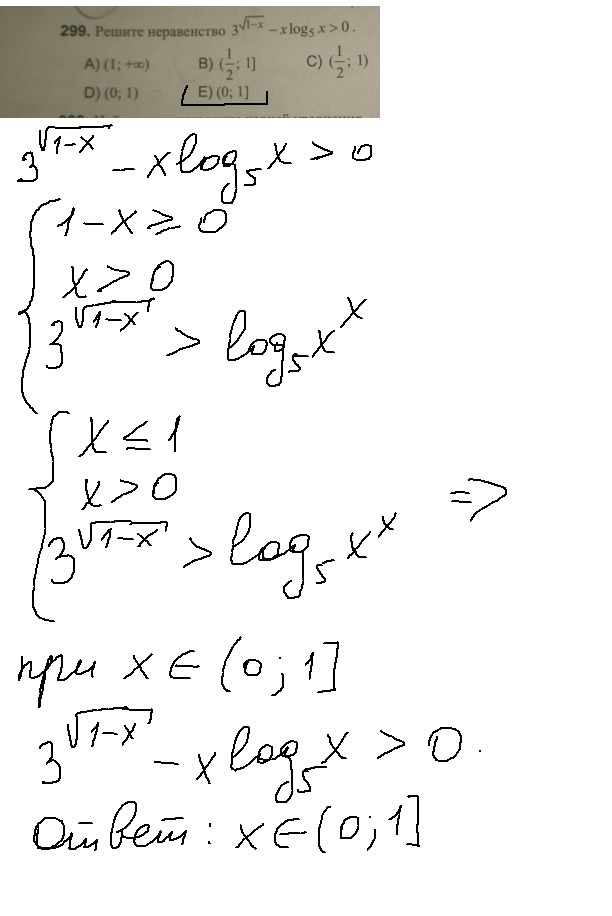 299. Решите неравенство 3^√(1−x) − x log₅ x > 0.
A) (1; +∞) B) (1/2; 1] C) (1/2; 1)
D) (0; 1) E) (0; 1]
3^√(1−x) − x log₅ x > 0
{ 1 − x ≥ 0
x > 0
3^√(1−x) > log₅ x^x
{ x ≤ 1
x > 0 =>
3^√(1−x) > log₅ x^x
при x ∈ (0; 1]
3^√(1−x) − x log₅ x > 0.
Ответ: x ∈ (0; 1]